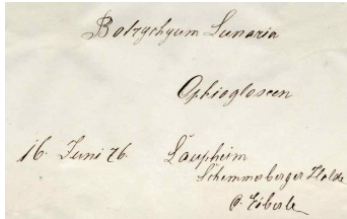 Botrychyum Lunaria
Ophiogloseen
16. Juni 76. Laupheim
Schemmerberger Halde